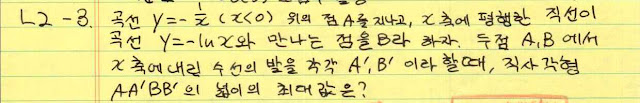 L2-3. 곡선 y=-1/x (x<0) 위의 점 A를 지나고, x축에 평행한 직선이
곡선 y=-lnx와 만나는 점을 B라 하자. 두점 A,B에서
x축에 내린 수선의 발을 각각 A',B' 이라 할때, 직사각형
AA'BB'의 넓이의 최대값은?